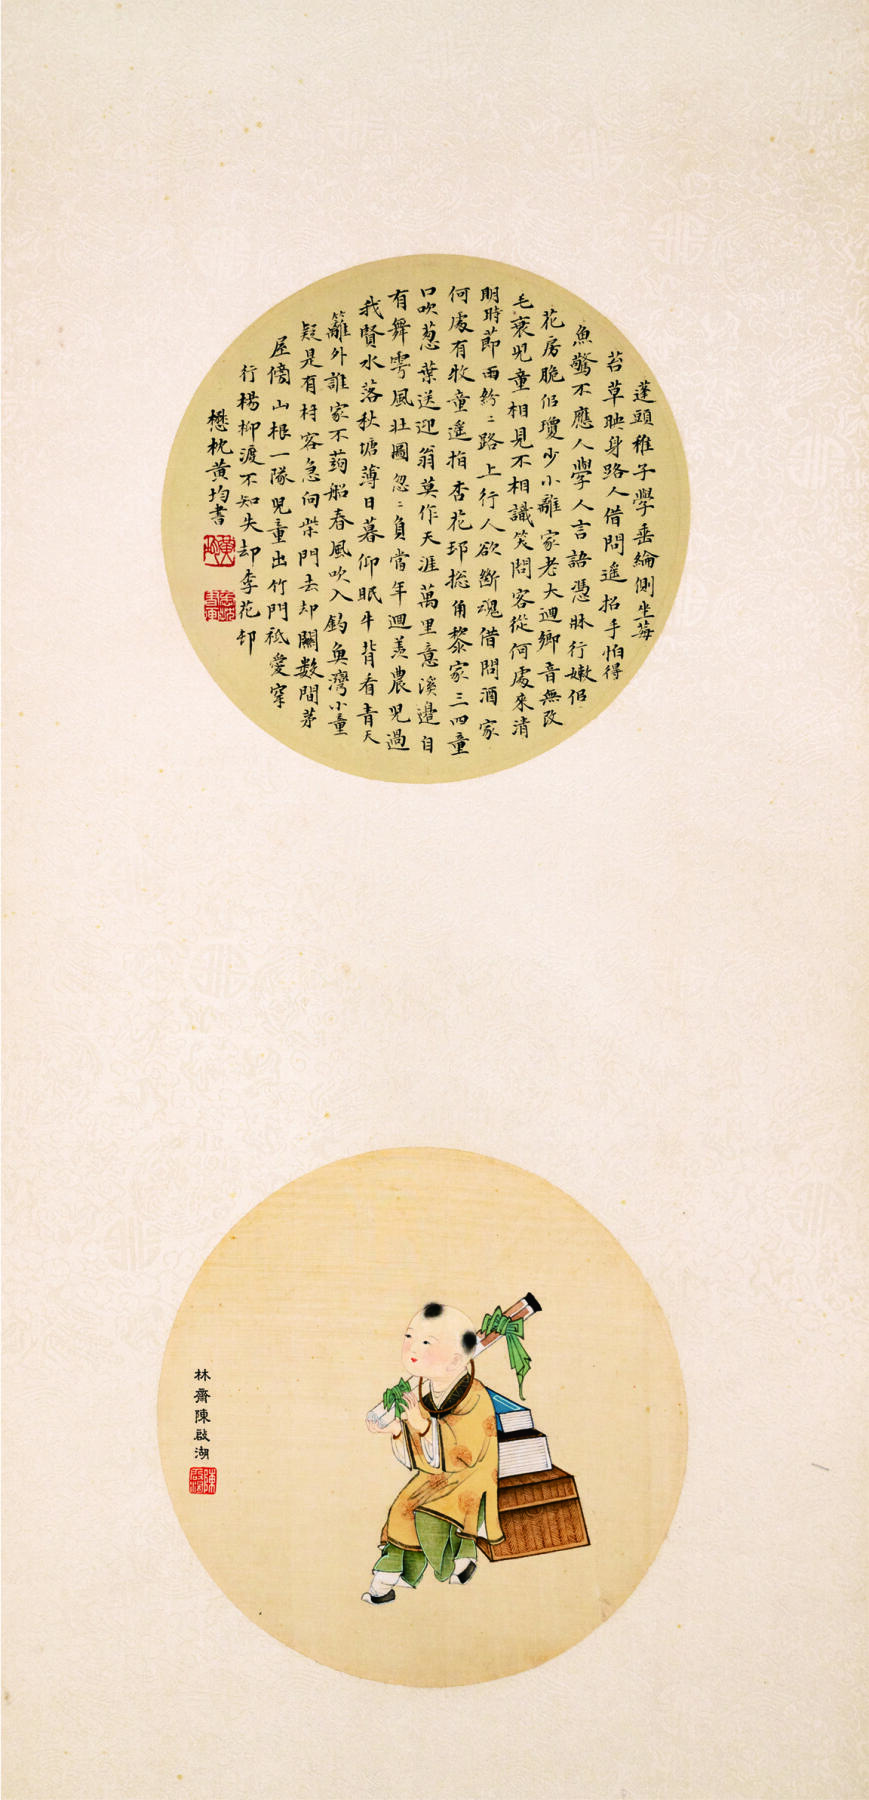 蓬頭稚子學垂綸側坐莓
苔草映身路人借問遙招手怕得
魚驚不應人學人言語憑牀行嫩似
花房脆似瓊少小離家老大迴鄉音無改
毛衰兒童相見不相識笑問客從何處來清
明時節雨紛〻路上行人欲斷魂借問酒家
何處有牧童遙指杏花邨總角黎家三四童
口吹葱葉送迎翁莫作天涯萬里意溪邊自
有舞雩風壯圖忽〻負當年迴羨農兒過
我賢水落秋塘薄日暮仰眠牛背看青天
籬外誰家不蒟船春風吹入釣魚灣小童
疑是有村客急向柴門去却關數間茅
屋傍山根一隊兒童出竹門祗愛穿
行楊柳渡不知失却李花邨
懋枕黄均書
林齋陳啟湖